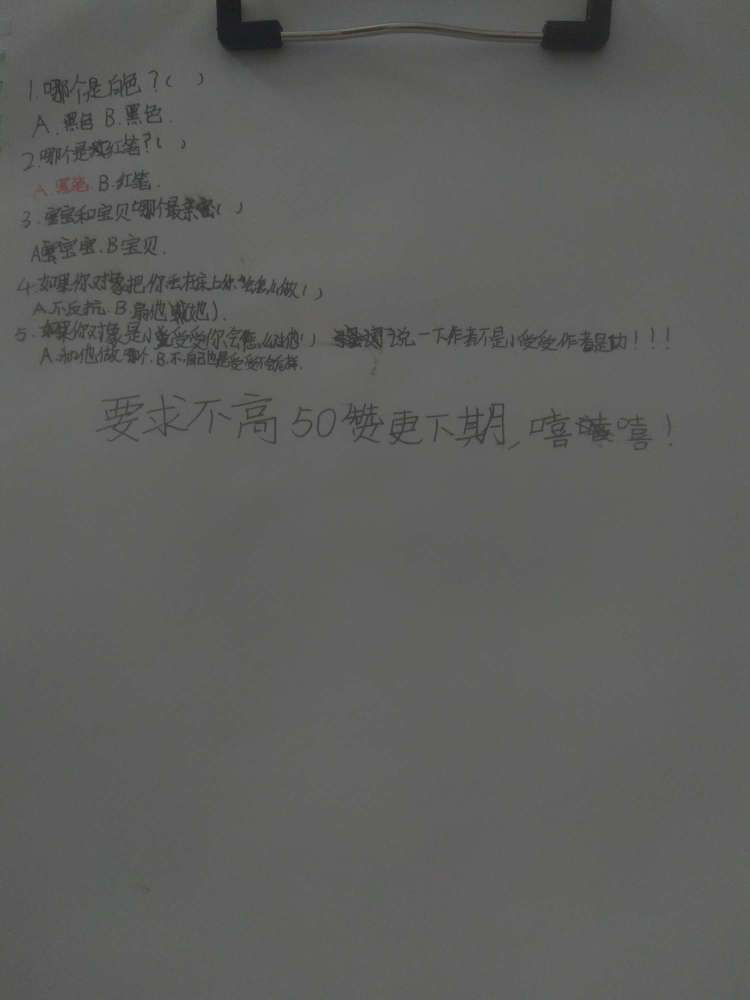 1.哪个是白色?( )
A.黑色 B.黑色.
2.哪个是红笔?( )
A.黑笔.B.红笔.
3.宝宝和宝贝哪个最亲密( )
A宝宝.B宝贝.
4.如果你对象把你压在床上你会怎么做( )
A.不反抗.B.扇他(她).
5.如果你对象是小受受你会怎么对他( ) 说一下作者不是小受受作者是功!!!
A.和他做那个.B.不自己也是受受不会后样.
要求不高50赞更下期,嘻嘻嘻!